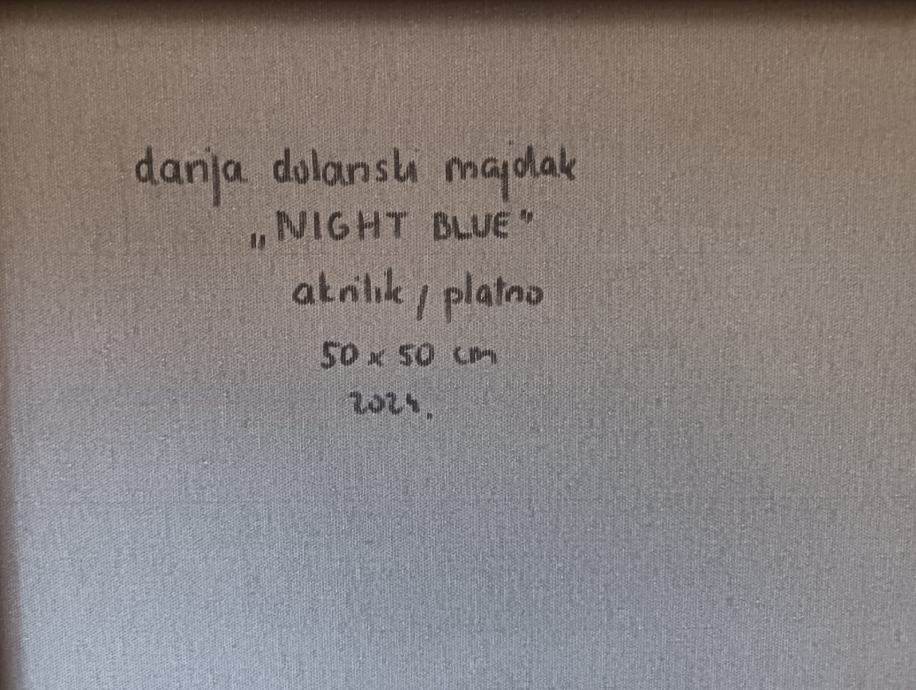 danja dolanski majdak
„NIGHT BLUE”
akrilik / platno
50 x 50 cm
2024.